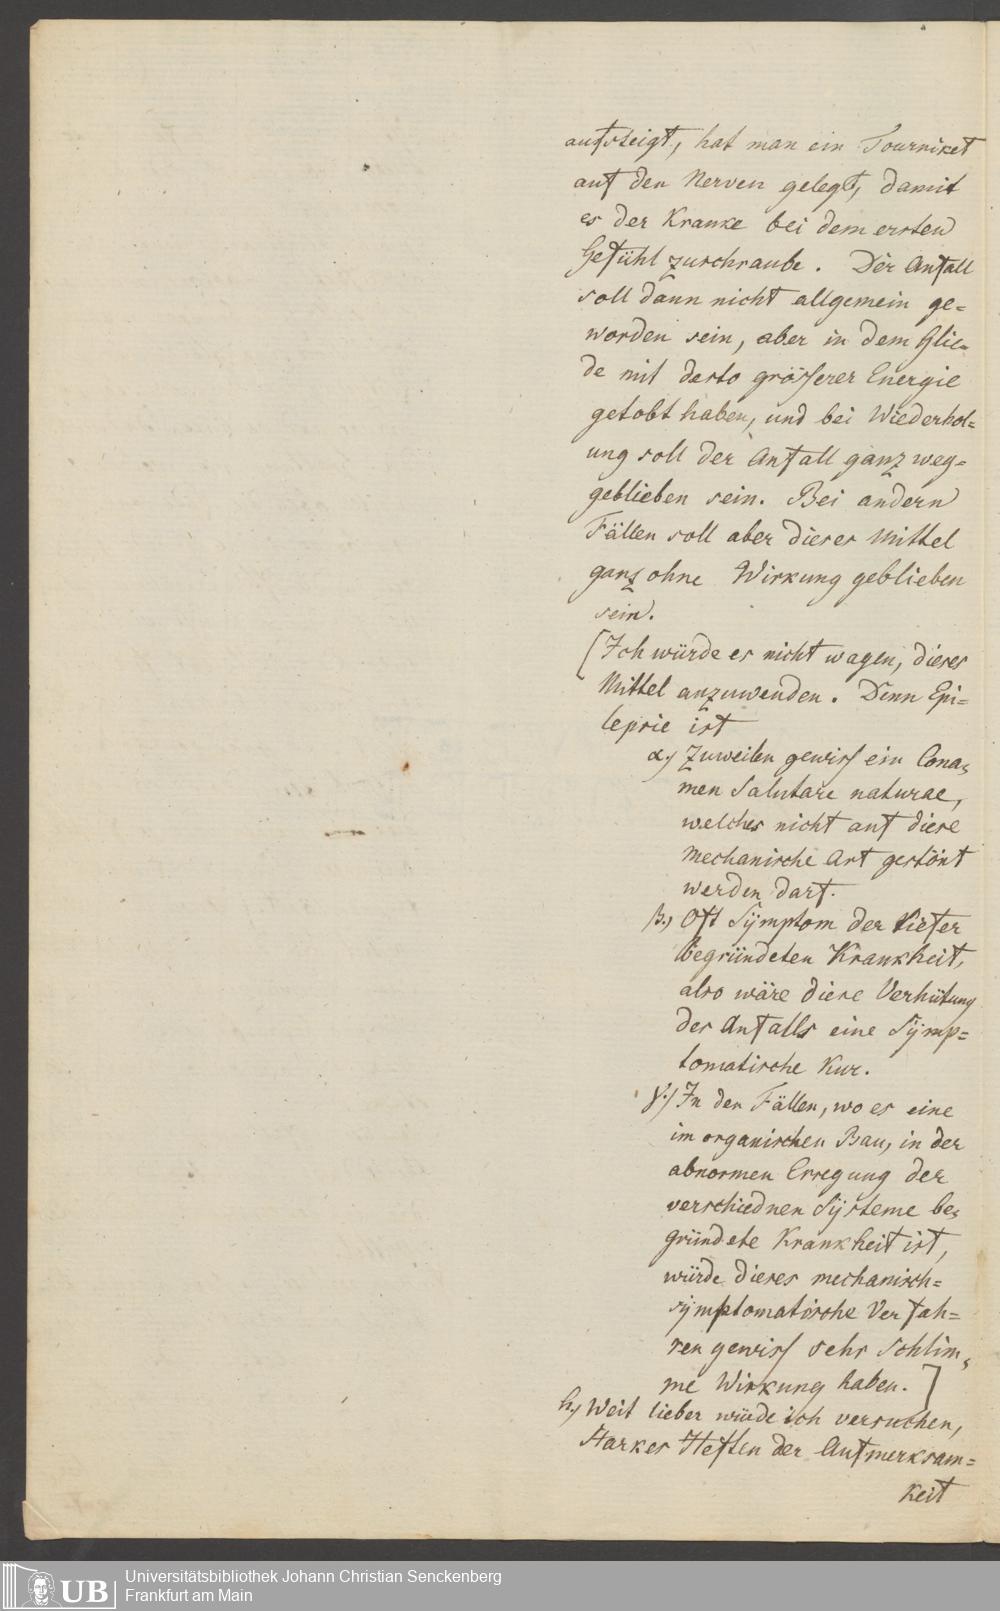 aufsteigt, hat man ein Tourniket
auf den Nerven gelegt, damit
es der Kranke bei dem ersten
Gefühl zuschraube. Der Anfall
soll dann nicht allgemein ge=
worden sein, aber in dem Glie=
de mit desto größerer Energie
getobt haben, und bei Wiederhol=
ung soll der Anfall ganz weg=
geblieben sein. Bei andern
Fällen soll aber dieses Mittel
ganz ohne Wirkung geblieben
sein.
[Ich würde es nicht wagen, dieses
Mittel anzuwenden. Denn Epi=
lepsie ist
α.) Zuweilen gewiß ein Cona=
men Salutare naturae,
welches nicht auf diese
mechanische Art gestört
werden darf.
β.) Oft Sÿmptom der tiefer
begründeten Krankheit,
also wäre diese Verhütung
des Anfalls eine Sÿmp=
tomatische Kur.
γ.) In den Fällen, wo es eine
im organischen Bau, in der
abnormen Erregung der
verschiednen Sÿsteme be=
gründete Krankheit ist,
würde dieses mechanisch=
sÿmptomatische Verfah=
ren gewiß sehr schlim=
me Wirkung haben.]
h.) Weit lieber würde ich versuchen,
starkes Heften der Aufmerksam=
keit
UB
Universitätsbibliothek Johann Christian Senckenberg
Frankfurt am Main